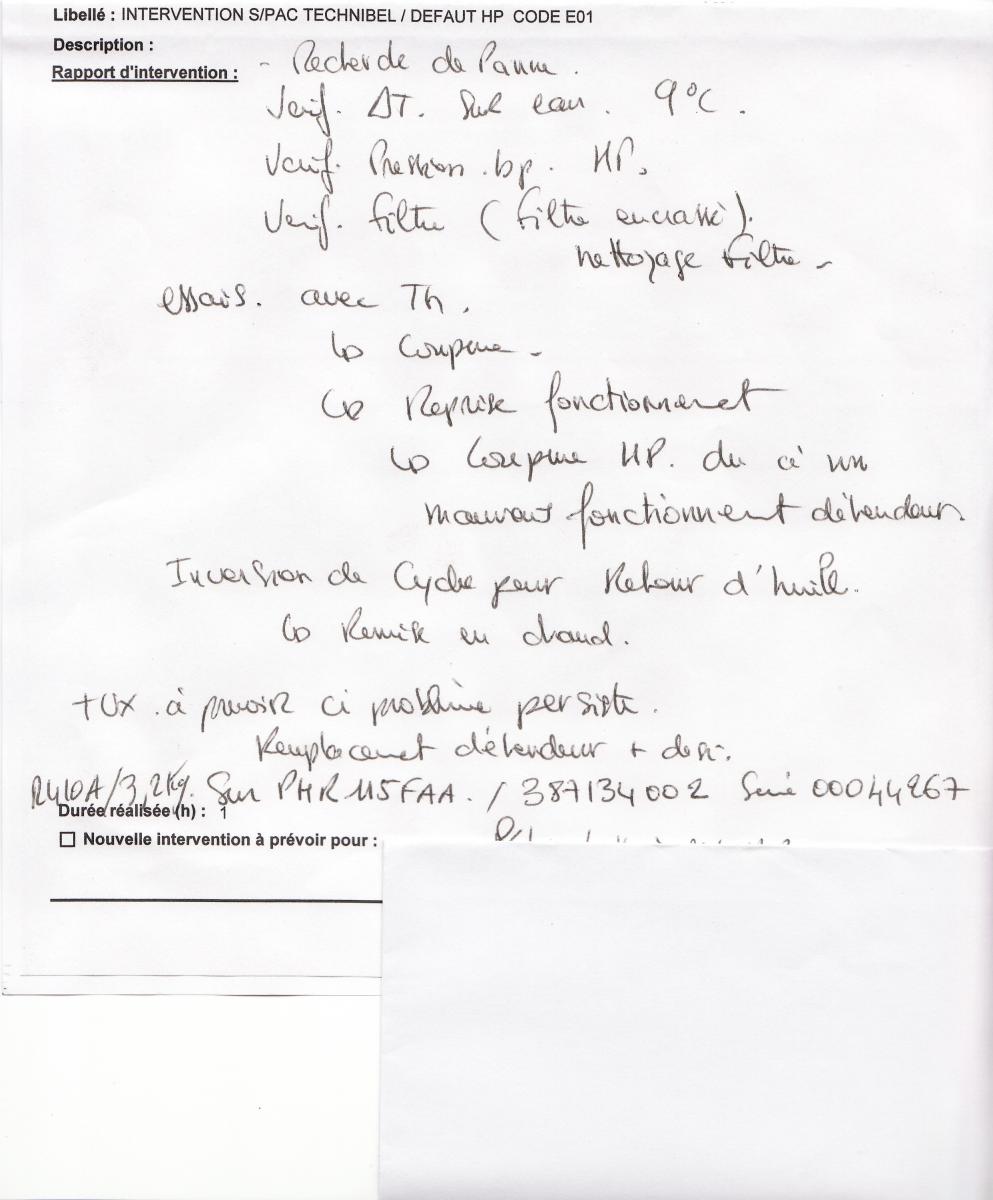 Libellé : INTERVENTION S/PAC TECHNIBEL / DEFAUT HP CODE E01
Description :
Rapport d'intervention : - Recherche de Panne.
Verif. ΔT. sur eau. 9°C.
Verif. Pression. bp. HP.
Verif. filtre (filtre encrassé).
nettoyage filtre -
essais. avec Th.
↳ Coupure -
↳ Reprise fonctionnement
↳ Coupure HP. du à un
mauvais fonctionnement détendeur.
Inversion de Cycle pour Retour d'huile.
↳ Remise en chaud.
+ux. à prévoir ci problème persiste.
Remplacement détendeur + desi.
R410A/3,2Kg. Sur PHR 115FAA. / 387134002 Serié 00044267
Durée réalisée (h) : 1
☐ Nouvelle intervention à prévoir pour :